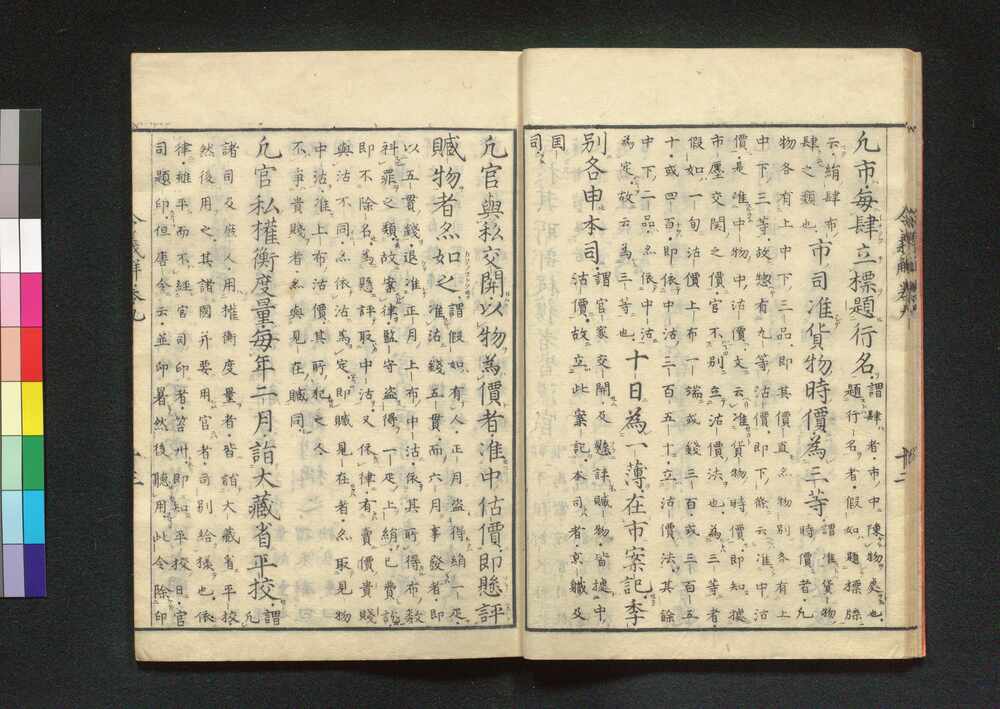 凢市毎肆立標題行名 謂肆者市中陳物處也
題行名者假如題標牓
云絹肆布
肆之類也 市司准貨物時價為三等 謂准貨物
時價者凢
物各有上中下三品即其價直亦物別各有上
中下三等故惣有九等沽價即下條云准中沽
價是准中物中沽價文云准貨物時價即知據
市廛交関之價官不別立沽價法也為三等者
假如一旬沽價上布一端或錢三百或三百五
十或四百即依中沽三百五十立沽價法其餘
中下二品亦依中沽
為定故云為三等也 十日為一薄在市案記季
別各申本司 謂官家交関及懸評贓物皆據中
沽價故立此案記本司者京職及
囯
司
令義解巻九 十二
凢官與私交関以物為價者准中估價即懸評
贓物者亦如之 謂假如有人正月盗得絹一疋
准沽錢五貫而六月事發者即
以五貫錢退准正月上布中沽依其所得布数
科罪之類故案律監守盗得一疋上絹已費訖
即不除名為懸評取中沽又依律有賣價貴賤
與沽不同亦依沽為定即贓見在者亦取見物
中沽准上布沽價其所犯之人
不爭貴賤者亦與見在贓同
凢官私權衡度量毎年二月詣大藏省平挍 謂
凢
諸司及庶人用權衡度量者皆詣大藏省平挍
然後用之其諸國并要用官者司別給樣也依
律雖平而不經官司印者笞卌即知平挍日官
司題印但唐令云並印署然後聽用此令除印